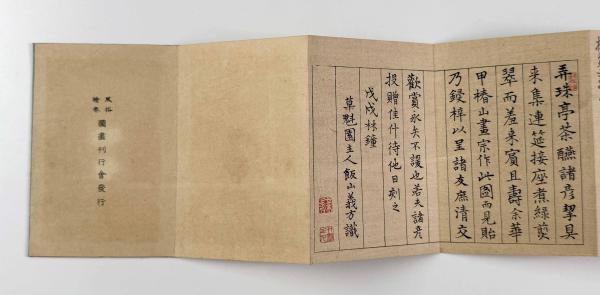 弄珠亭茶醼諸彦挈具
来集連筵接座煮緑煎
翠而羞来賓且壽余華
甲椿山畫宗作此圖而見貽
乃鋟梓以呈諸友庶清交
歡賞永矢不諼也若夫諸彦
投贈佳什待他日刻之
戊戌林鐘
草魁園主人飯山義方識
風俗繪卷圖畫刊行會發行